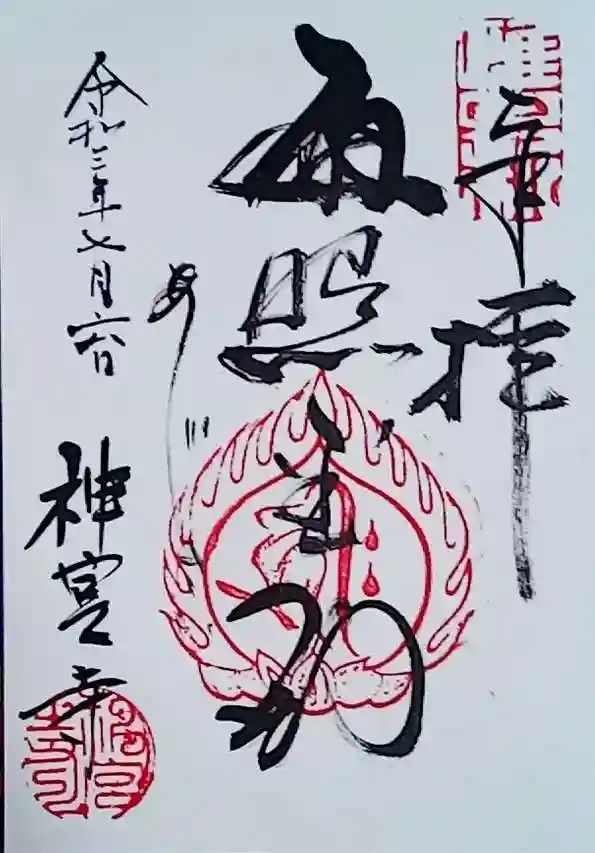 奉拝
遍照金剛
令和三年七月六日
神宮寺